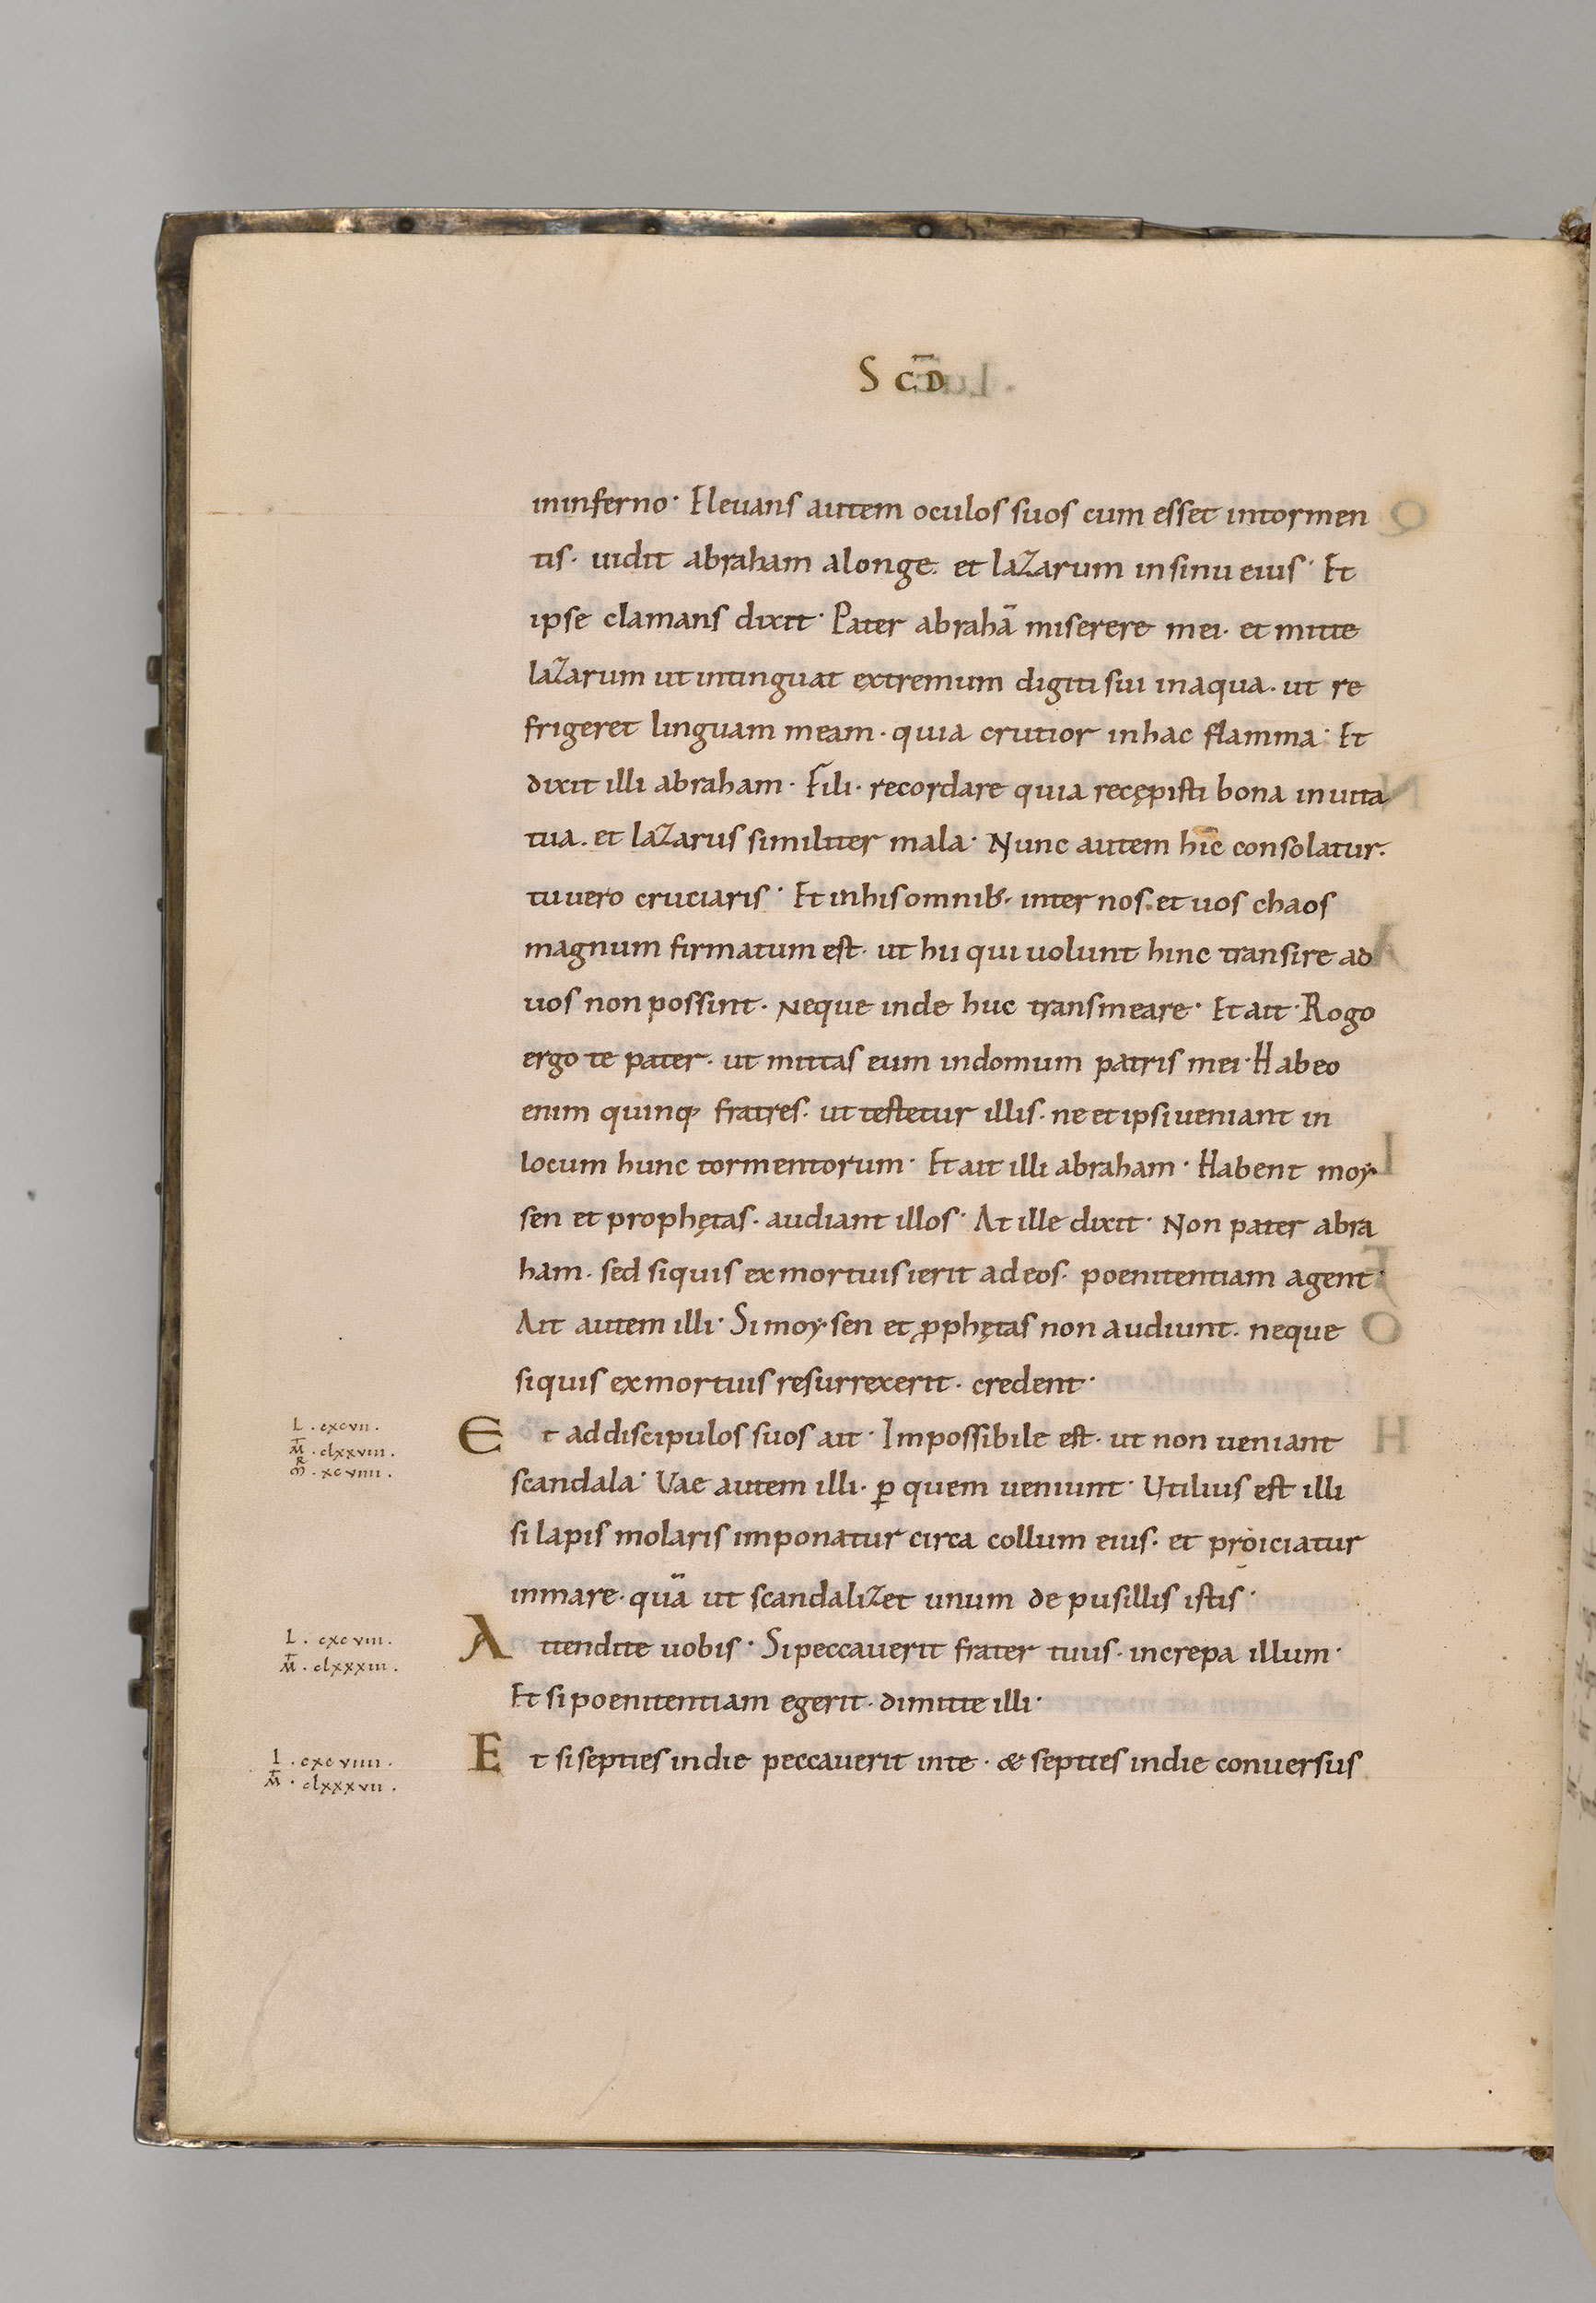 S CD̄
ininferno· Eleuans autem oculos suos cum esset intormen
tis· uidit abraham alonge· et lazarum insinu eius· Et
ipse clamans dixit· Pater abrahā miserere mei· et mitte
lazarum ut intinguat extremum digiti sui inaqua· ut re
frigeret linguam meam· quia crutior inhac flamma· Et
dixit illi abraham· Fili· recordare quia recępisti bona inuita
tua· et lazarus similiter mala· Nunc autem hic consolatur·
tuuero cruciaris· Et inhisomnib;· inter nos· et uos chaos
magnum firmatum est· ut hii qui uolunt hinc transire ad
uos nonpossint· neque inde huc transmeare· Et ait· Rogo
ergo te pater· ut mittas eum indomum patris mei· Habeo
enim quinq; fratres· ut testetur illis· ne et ipsi ueniant in
locum hunc tormentorum· Et ait illi abraham· Habent moy
sen et prophętas· audiant illos· At ille dixit· Non pater abra
ham· sed siquis exmortuis ierit adeos· poenitentiam agent·
Ait autem illi· Si moysen et ꝓphętas non audiunt· neque
siquis exmortuis resurrexerit· credent·
L · cxcvii ·
M̄ · clxxviii ·
m̄R · xcviiii ·
Et addiscipulos suos ait· Impossibile est· ut non ueniant
scandala· Vae autem illi· ꝑ quem ueniunt· Utilius est illi
si lapis molaris imponatur circa collum eius· et proiciatur
inmare· quā ut scandalizet unum de pusillis istis·
L · cxcviii ·
M̄ · clxxxiii ·
Attendite uobis· Si peccauerit frater tuus· increpa illum·
Et si poenitentiam egerit· dimitte illi·
L · cxcviiii ·
M̄ · clxxxvii ·
Et si septies indie peccauerit inte· & septies indie conuersus